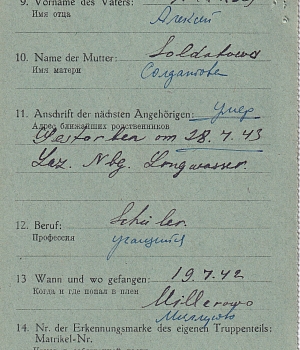 9. Vorname des Vaters:
Имя отца
Алексей
10. Name der Mutter: Soldatowa
Имя матери
Солдатова
11. Anschrift der nächsten Angehörigen: умер
Адрес ближайших родственников
Gestorben am 28.7.43
Laz. Nbg. Langwasser.
12. Beruf: Schüler.
Профессия
учащийся
13 Wann und wo gefangen: 19.7.42
Когда и где попал в плен
Millerowo
Миллерово
14. Nr. der Erkennungsmarke des eigenen Truppenteils:
Matrikel-Nr.